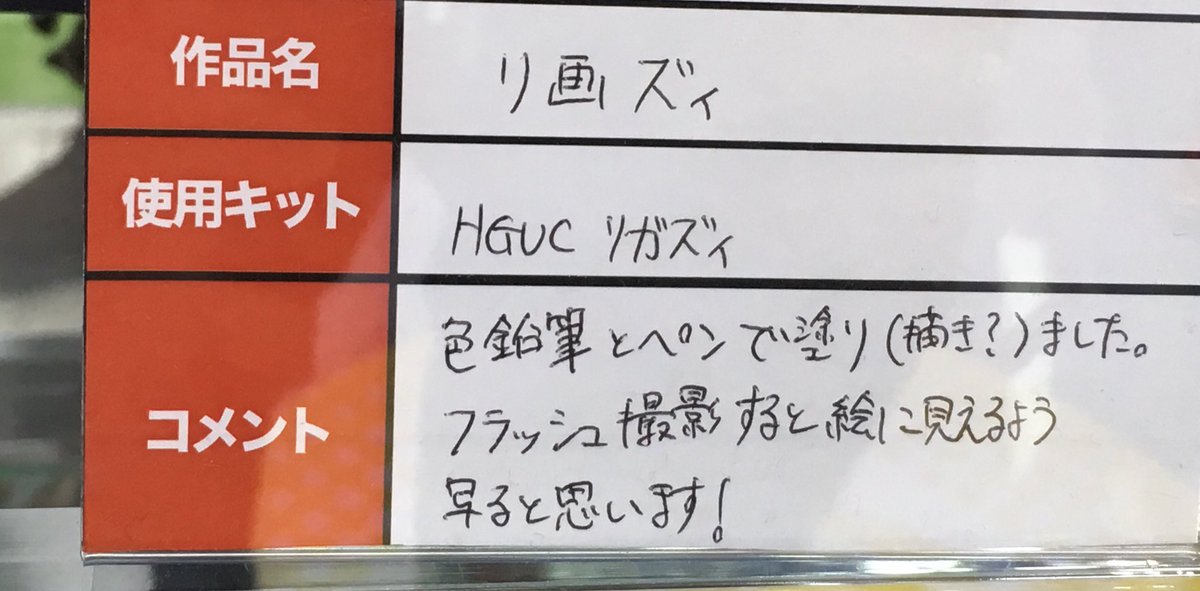 作品名
リ画ズィ
使用キット
HGUC リガズィ
コメント
色鉛筆とペンで塗り(描き?)ました。
フラッシュ撮影すると絵に見えるよう
早ると思います!